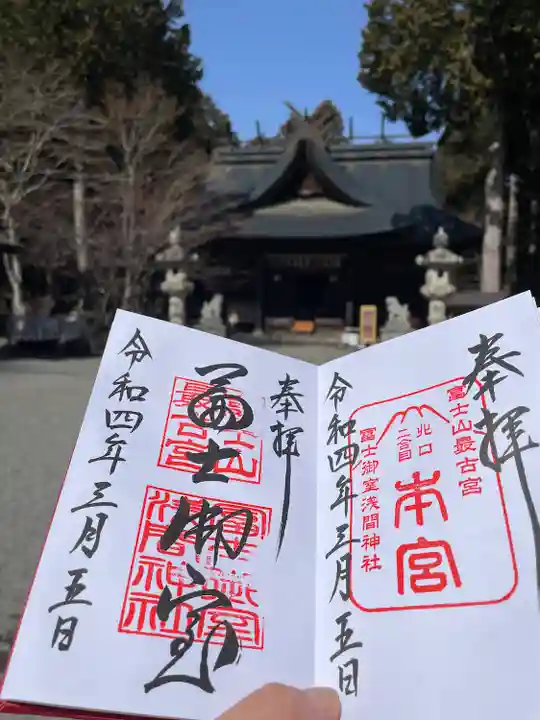 奉拝
富士山最古宮
北口
二合目
本宮
富士御室浅間神社
令和四年三月五日
奉拝
富士御室
富士山
最古宮
令和四年三月五日